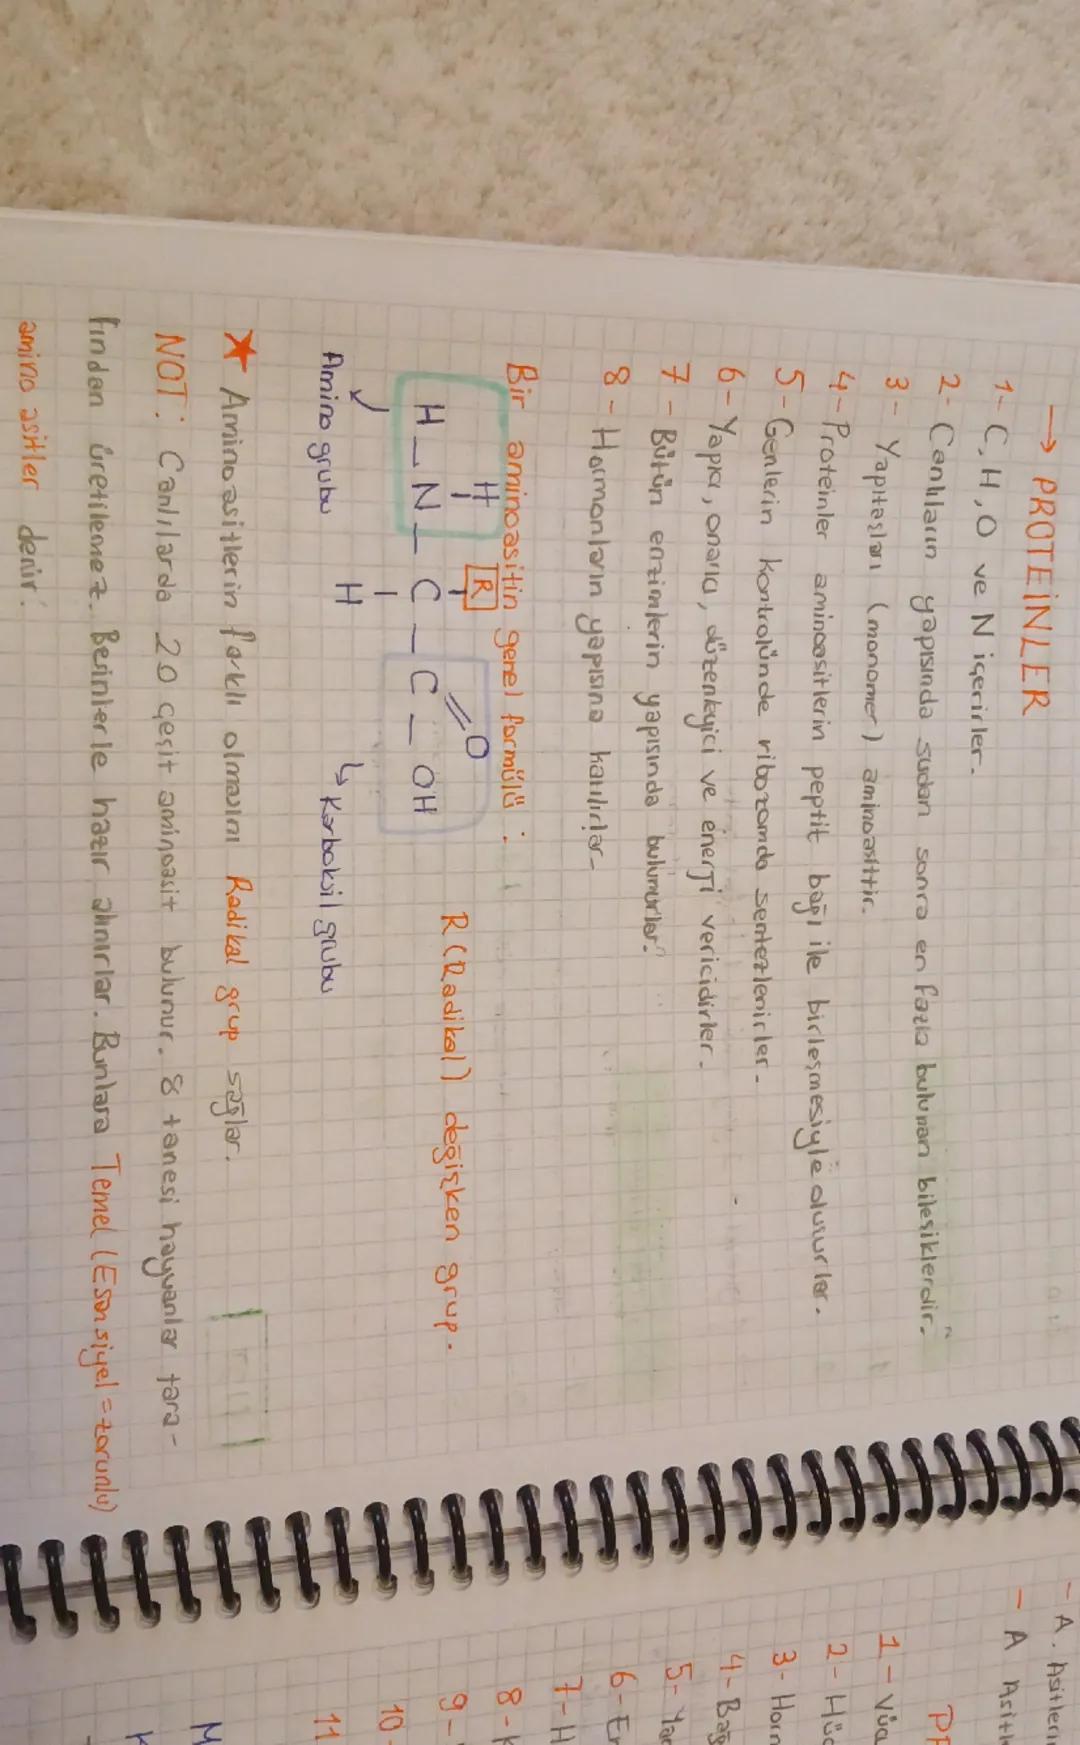 → PROTEİNLER
1- C, H, O ve N içerirler.
2- Canlıların yapısında sudan sonra en fazla bulunan bileşiklerdir.
3- Yapıtaşları (monomer) aminoasittir.
4- Proteinler aminoasitlerin peptit bağı ile birleşmesiyle oluşurlar.
5- Genlerin kontrolünde ribozomda sentezlenirler.
6- Yapıcı, onarıcı, düzenleyici ve enerji vericidirler.
7- Bütün enzimlerin yapısında bulunurlar.
8- Hormonların yapısına katılırlar.
Bir aminoasitin genel formülü:
H R O
H - N - C - C - OH
H
R (Radikal) değişken grup.
Amino grubu
↳ Karboksil grubu
★ Aminoasitlerin farklı olmasını Radikal grup sağlar.
NOT: Canlılarda 20 çeşit aminoasit bulunur. 8 tanesi hayvanlar tara-
fından üretilemez. Besinlerle hazır alınırlar. Bunlara Temel (Esansiyel = zorunlu)
amino asitler denir.
- A. Asitlerin
- A Asitle
PR
1- Vüc
2- Hüc
3- Horm
4- Bağ
5- Yar
6- En
7- H
8- K
9-
10-
11
M
K